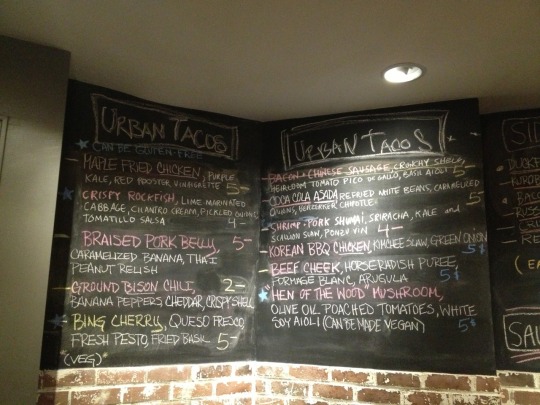 URBAN TACOS
★ CAN BE GLUTEN-FREE
MAPLE FRIED CHICKEN, PURPLE
KALE, RED ROOSTER VINAIGRETTE 5-
CRISPY ROCKFISH, LIME MARINATED
CABBAGE, CILANTRO CREAM, PICKLED ONIONS
TOMATILLO SALSA 4-
BRAISED PORK BELLY, 5-
CARAMELIZED BANANA, THAI
PEANUT RELISH
GROUND BISON CHILI, 2-
BANANA PEPPERS, CHEDDAR, CRISPY SHELL
BING CHERRY, QUESO FRESCO,
FRESH PESTO, FRIED BASIL 5-
(VEG)
URBAN TACOS
BACON + CHINESE SAUSAGE, CRUNCHY SHELL,
HEIRLOOM TOMATO PICO DE GALLO, BASIL AIOLI 5-
COCA COLA ASADA REFRIED WHITE BEANS, CARAMELIZED
ONIONS, CHIPOTLE 5-
SHRIMP + PORK SHUMAI, SRIRACHA, KALE AND
SCALLION SLAW, PONZU VIN 4-
KOREAN BBQ CHICKEN, KIMCHEE SLAW, GREEN ONION
5-
BEEF CHEEK, HORSERADISH PUREE,
FROMAGE BLANC, ARUGULA 5-
★ "HEN OF THE WOOD" MUSHROOM,
OLIVE OIL POACHED TOMATOES, WHITE
SOY AIOLI (CAN BE MADE VEGAN) 5-